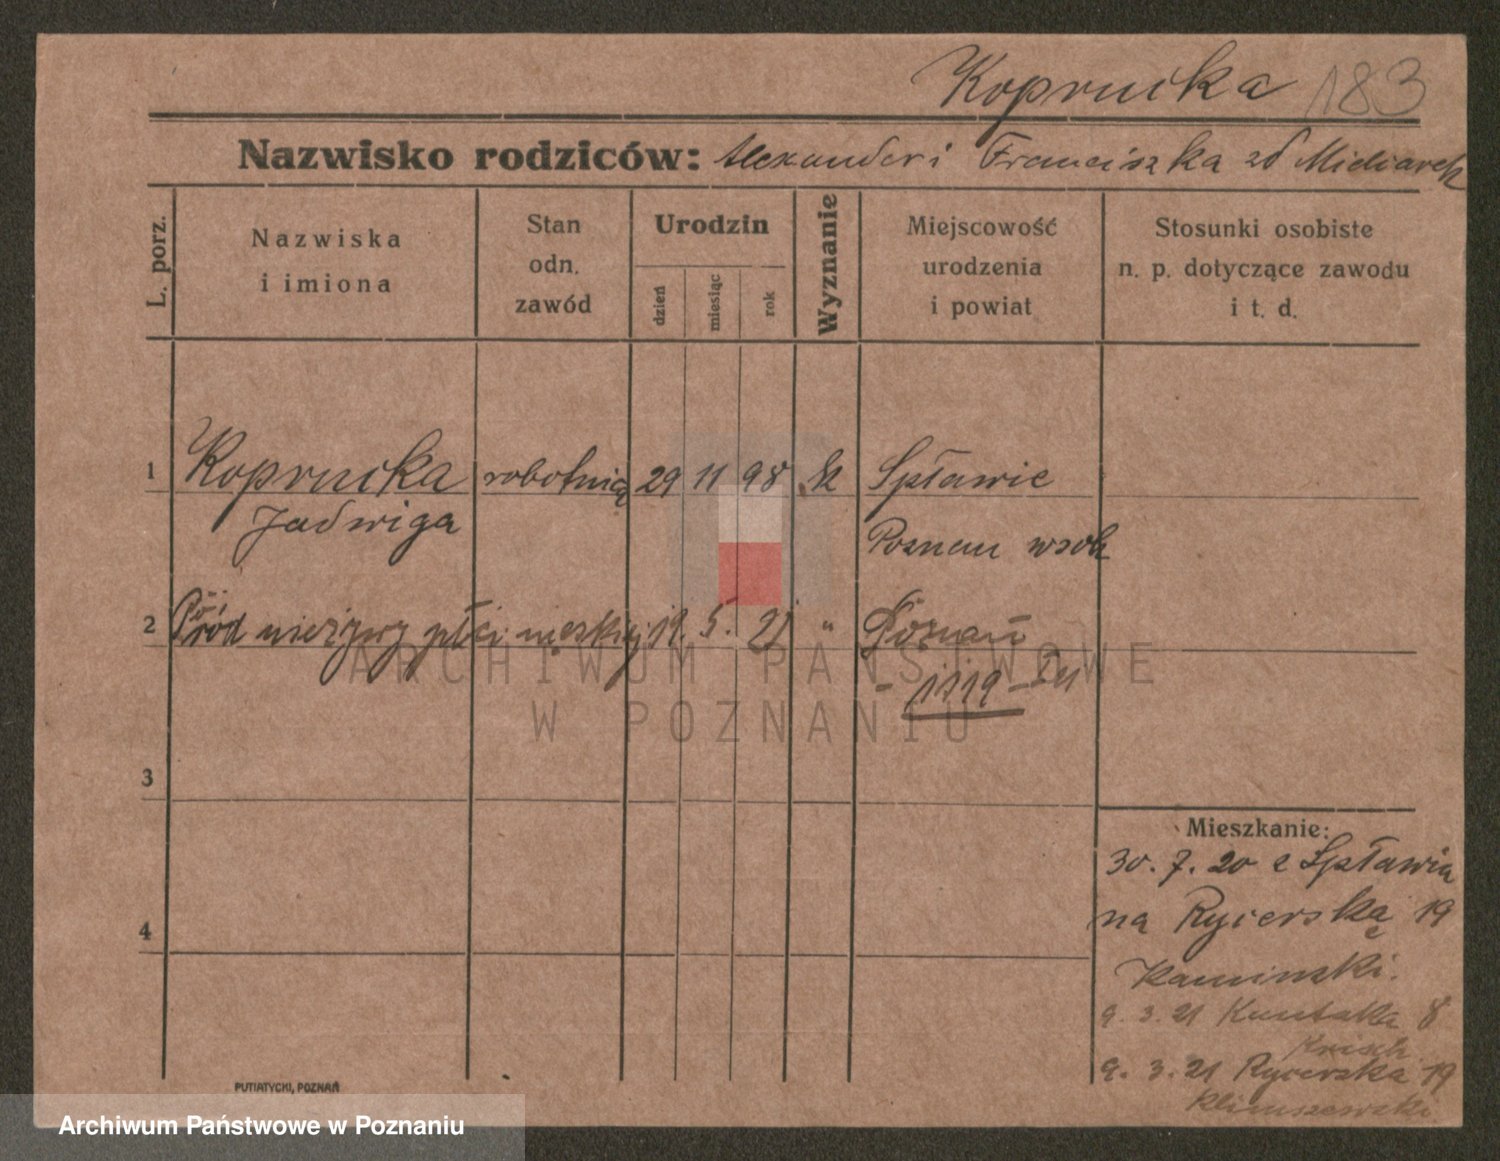 Koprucka 183
Nazwisko rodziców: Alexander i Franciszka zd Mielcarek
L. porz.
Nazwiska
i imiona
Stan
odn.
zawód
Urodzin
dzień
miesiąc
rok
Wyznanie
Miejscowość
urodzenia
i powiat
Stosunki osobiste
n. p. dotyczące zawodu
i t. d.
1 Koprucka robotnica 29 11 98 k Spławie
Jadwiga Poznań wsch
2 Płód nieżywy płci męskiej 19. 5. 21 " Poznań
- 1119 -
ARCHIWUM PAŃSTWOWE
W POZNANIU
3
4
Mieszkanie:
30. 7. 20 z Spławia
na Rycerską 19
Kaminski.
9. 3. 21 8
9. 3. 21 Rycerska 19
Klimaszewski
PUTIATYCKI, POZNAŃ
Archiwum Państwowe w Poznaniu